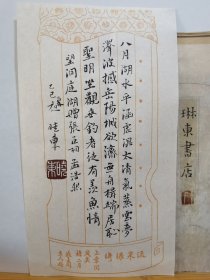 八月湖水平涵虛混太清氣蒸雲夢
澤波撼岳陽城欲濟無舟楫端居恥
聖明坐觀垂釣者徒有羨魚情
望洞庭湖贈張丞相孟浩然
乙巳
曉東
東書店